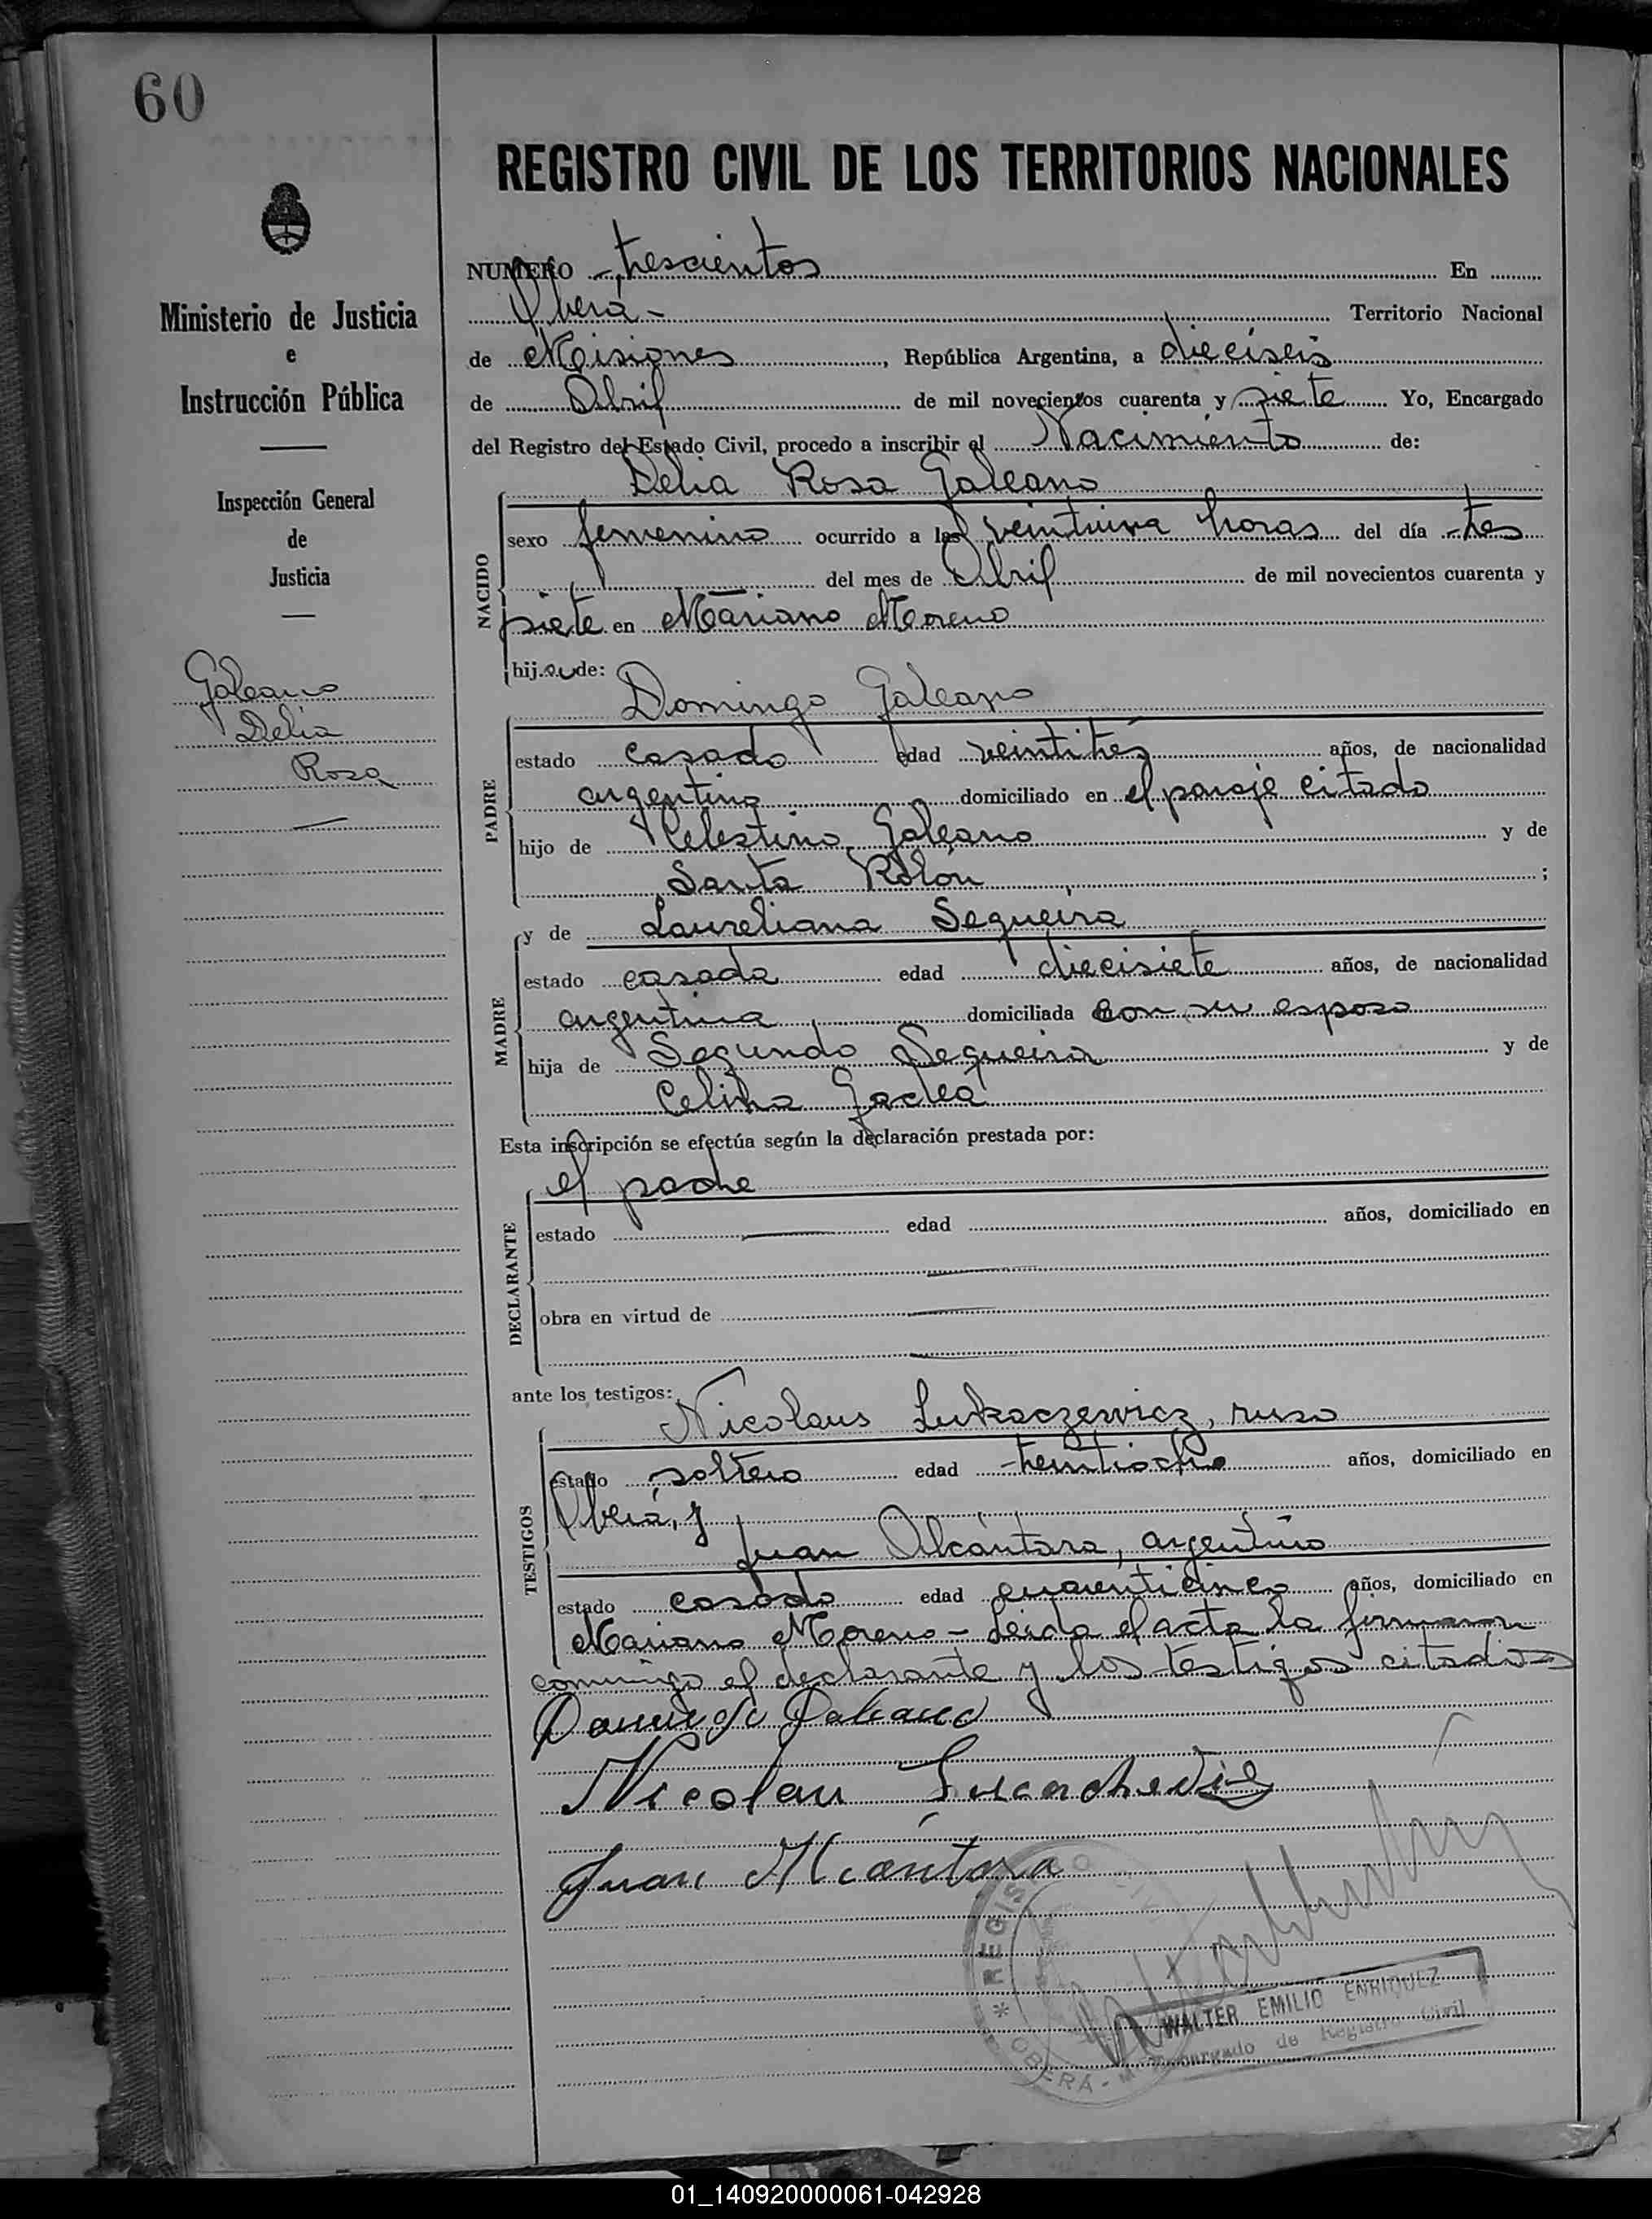 60
REGISTRO CIVIL DE LOS TERRITORIOS NACIONALES
Ministerio de Justicia
e
Instrucción Pública
Inspección General
de
Justicia
Galeano
Delia
Rosa
NUMERO trescientos En
Oberá - Territorio Nacional
de Misiones, República Argentina, a dieciseis
de Abril de mil novecientos cuarenta y siete Yo, Encargado
del Registro del Estado Civil, procedo a inscribir el Nacimiento de:
Delia Rosa Galeano
NACIDO
sexo femenino ocurrido a las veintiuna horas del día tres
del mes de Abril de mil novecientos cuarenta y
siete en Mariano Moreno
hija de:
Domingo Galeano
PADRE
estado casado edad veintitrés años, de nacionalidad
argentino domiciliado en el paraje citado
hijo de Celestino Galeano y de
Santa Rolón ;
y de Laureliana Sequeira
MADRE
estado casada edad diecisiete años, de nacionalidad
argentina domiciliada con su esposo
hija de Segundo Sequeira y de
Celina
Esta inscripción se efectúa según la declaración prestada por:
el padre
DECLARANTE
estado edad años, domiciliado en
obra en virtud de
ante los testigos:
Nicolaus Lukaczewicz, ruso
TESTIGOS
estado soltero edad treintiocho años, domiciliado en
Oberá, y
Juan Alcántara, argentino
estado casado edad cuarenticinco años, domiciliado en
Mariano Moreno - Leida el acta la firmaron
conmigo el declarante y los testigos citados
Domingo Galeano
Nicolau
Juan Alcántara
REGIS
OBERA - M
WALTER EMILIO ENRIQUEZ
Encargado de Registro Civil
01_140920000061-042928